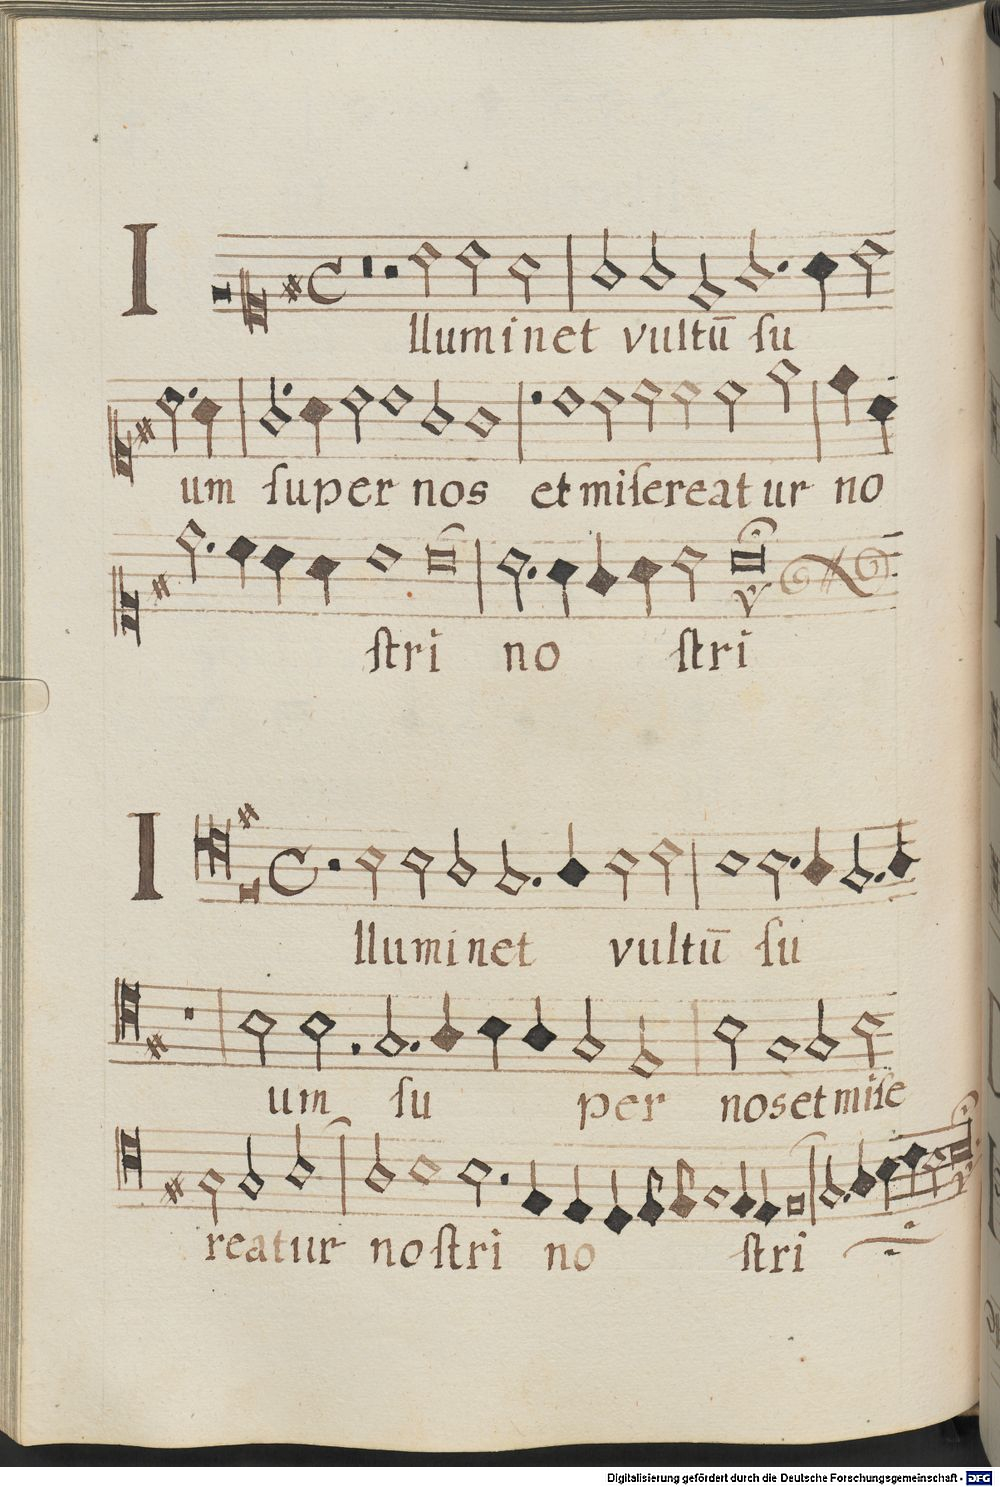 I
lluminet vultū ſu
um ſuper nos et miſereatur no
ſtri no ſtri
I
lluminet vultū ſu
um ſu per nos et miſe
reatur noſtri no ſtri
Digitalisierung gefördert durch die Deutsche Forschungsgemeinschaft - DFG